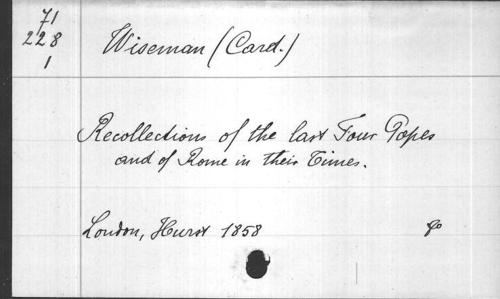 71
228
1
Wiseman (Card.)
Recollections of the last Four Popes
and of Rome in their Times.
London, Hurst 1858